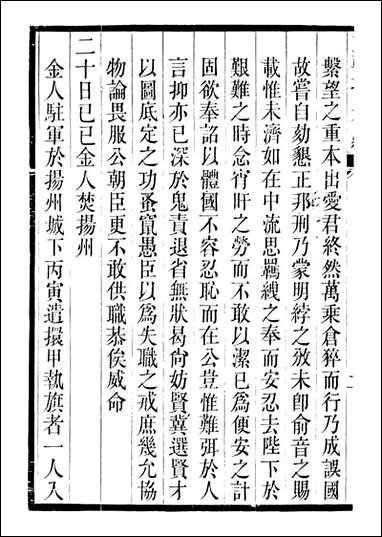 繫望之重本出愛君終然萬乘倉猝而行乃成誤國
故嘗自劾懇正邦刑乃蒙明綍之攽未卽俞音之賜
載惟未濟如在中流思羈紲之奉而安忍去陛下於
艱難之時念宵旰之勞而不敢以潔已為便安之計
固欲奉詔以體國不容忍恥而在公豈惟難弭於人
言抑亦已深於鬼責退省無狀曷尙妨賢冀選賢才
以圖底定之功亟竄愚臣以為失職之戒庶幾允協
物論畏服公朝臣更不敢供職恭俟威命
二十日己巳金人焚揚州
金人駐軍於揚州城下丙寅遣擐甲執旗者一人入